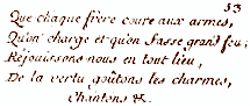 53
Que chaque frère coure aux armes,
Qu'on charge et qu'on fasse grand feu;
Réjouissons nous en tout lieu,
De la vertu goûtons les charmes,
Chantons &.